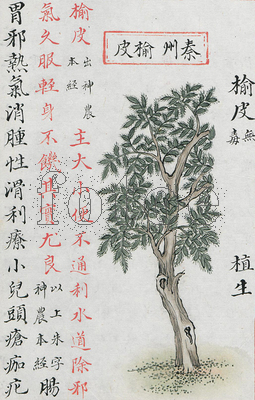 榆皮 無毒
植生
秦州榆皮
榆皮 出神農本經 主大小便不通利水道除邪
氣久服輕身不饑其實尤良 以上朱字神農本經 腸
胃邪熱氣消腫性滑利療小兒頭瘡痂疕